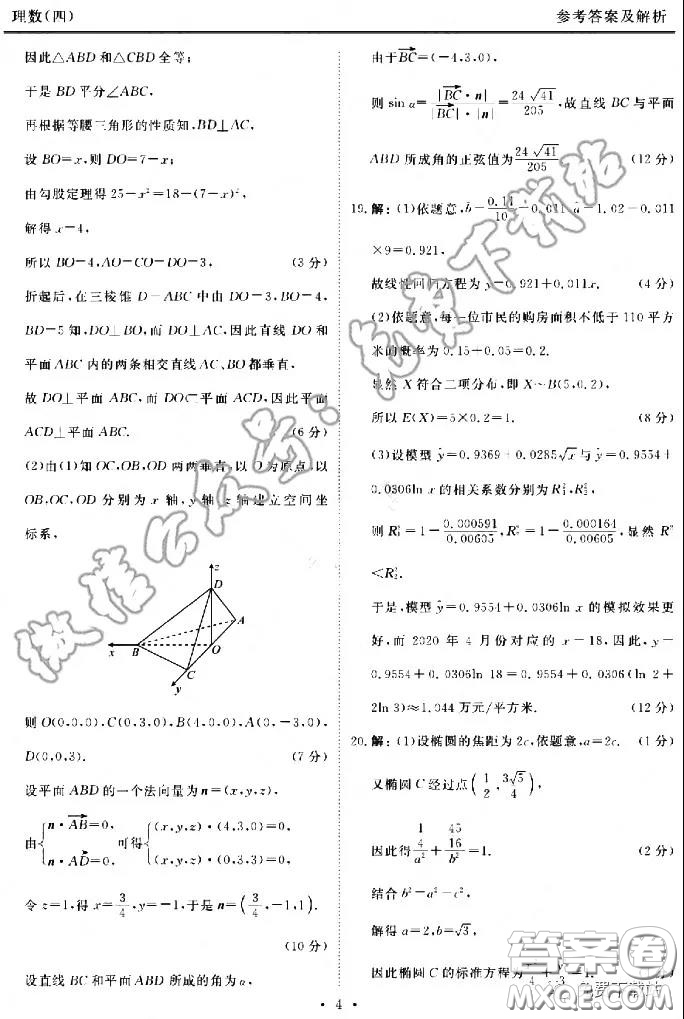 理数(四)
参考答案及解析
因此△ABD和△CBD全等;
于是BD平分∠ABC,
再根据等腰三角形的性质知,BD⊥AC,
设BO=x,则DO=7-x;
由勾股定理得25-x²=18-(7-x)²,
解得x=4,
所以BO=4,AO=CO=DO=3, (3分)
折起后,在三棱锥D-ABC中由DO=3,BO=4,
BD=5知,DO⊥BO,而DO⊥AC,因此直线DO和
平面ABC内的两条相交直线AC、BO都垂直,
故DO⊥平面ABC,而DO⊂平面ACD,因此平面
ACD⊥平面ABC. (6分)
(2)由(1)知OC,OB,OD两两垂直,以O为原点,以
OB,OC,OD分别为x轴,y轴,z轴建立空间坐
标系,
z
D
A
x
B
O
C
y
则O(0,0,0),C(0,3,0),B(4,0,0),A(0,-3,0),
D(0,0,3). (7分)
设平面ABD的一个法向量为n=(x,y,z),
由{n·AB=0, n·AD=0, 可得{(x,y,z)·(4,3,0)=0, (x,y,z)·(0,3,3)=0,
令z=1,得x=3/4,y=-1,于是n=(3/4,-1,1).
(10分)
设直线BC和平面ABD所成的角为α,
由于BC=(-4,3,0),
则sin α=|BC·n|/|BC|·|n|=24√41/205,故直线BC与平面
ABD所成角的正弦值为24√41/205 (12分)
19.解:(1)依题意,b=0.11/10=0.011,a=1.02-0.011
×9=0.921,
故线性回归方程为y=0.921+0.011x. (4分)
(2)依题意,每一位市民的购房面积不低于110平方
米的概率为0.15+0.05=0.2.
显然X符合二项分布,即X~B(5,0.2),
所以E(X)=5×0.2=1. (8分)
(3)设模型ŷ=0.9369+0.0285√x与ŷ=0.9554+
0.0306ln x的相关系数分别为R₁²,R₂²,
则R₁²=1-0.000591/0.00605,R₂²=1-0.000164/0.00605,显然R₁²
<R₂².
于是,模型ŷ=0.9554+0.0306ln x的模拟效果更
好,而2020年4月份对应的x=18,因此,y=
0.9554+0.0306ln 18=0.9554+0.0306(ln 2+
2ln 3)≈1.044万元/平方米. (12分)
20.解:(1)设椭圆的焦距为2c,依题意,a=2c. (1分)
又椭圆C经过点(1/2,3√5/4),
因此得(1/4)/a²+(45/16)/b²=1. (2分)
结合b²=a²-c²,
解得a=2,b=√3,
因此椭圆C的标准方程为
·4·
微信公众号:免费下载站
答案卷